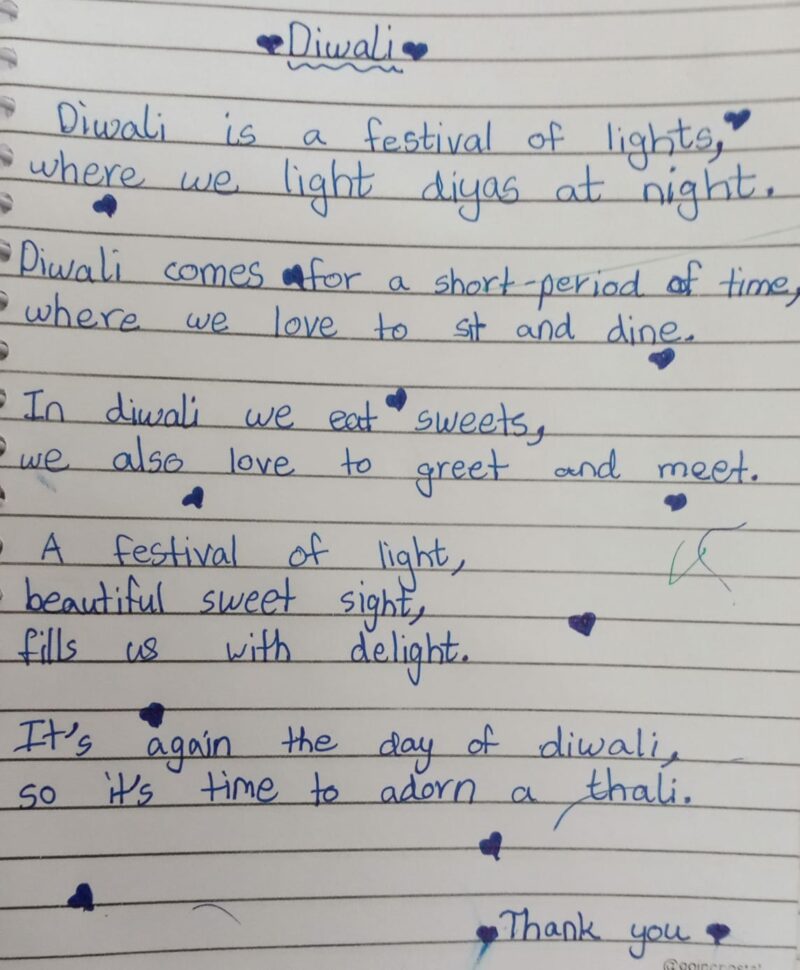 Diwali
Diwali is a festival of lights,
where we light diyas at night.
Diwali comes for a short-period of time,
where we love to sit and dine.
In diwali we eat sweets,
we also love to greet and meet.
A festival of light,
beautiful sweet sight,
fills us with delight.
It's again the day of diwali,
so it's time to adorn a thali.
Thank you